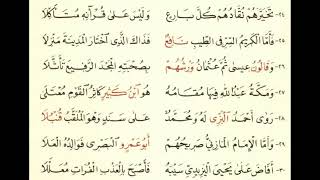 ٢٤- تَخَيَّرَهُمْ نُقَّادُهُمْ كُلَّ بَارِعٍ وَلَيْسَ عَلَىٰ قُرْآنِهِ مُتَأَكِّلَا
٢٥- فَأَمَّا الْكَرِيمُ السِّرِّ فِي الطِّيبِ نَافِعٌ فَذَاكَ الَّذِي اخْتَارَ الْمَدِينَةَ مَنْزِلَا
٢٦- وَقَالُونُ عِيسَىٰ ثُمَّ عُثْمَانُ وَرْشُهُمْ بِصُحْبَتِهِ الْمَجْدَ الرَّفِيعَ تَأَثَّلَا
٢٧- وَمَكَّةُ عَبْدُ اللهِ فِيهَا مُقَامُهُ هُوَ ابْنُ كَثِيرٍ كَاثِرُ الْقَوْمِ مُعْتَلَىٰ
٢٨- رَوَىٰ أَحْمَدُ الْبَزِّي لَهُ وَمُحَمَّدٌ عَلَىٰ سَنَدٍ وَهْوَ الْمُلَقَّبُ قُنْبُلَا
٢٩- وَأَمَّا الْإِمَامُ الْمَازِنِيُّ صَرِيحُهُمْ أَبُو عَمْرٍو الْبَصْرِي فَوَالِدُهُ الْعَلَا
٣٠- أَفَاضَ عَلَىٰ يَحْيَى الْيَزِيدِيِّ سَيْبَهُ فَأَصْبَحَ بِالْعَذْبِ الْفُرَاتِ مُعَلَّلَا